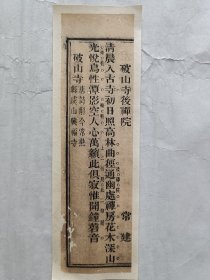 破山寺後禪院
常建
清晨入古寺初日照高林曲徑通幽處禪房花木深山
光悅鳥性潭影空人心萬籟此俱寂惟聞鐘磬音
破山寺
縣虞山興福寺